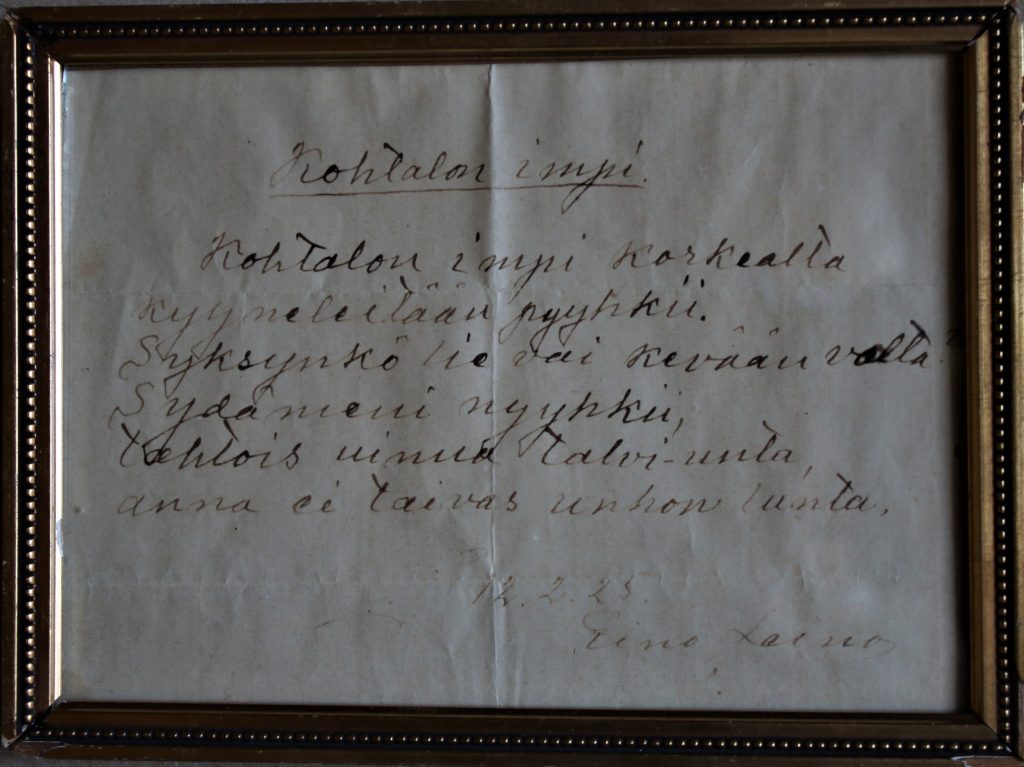 Kohtalon impi.
Kohtalon impi korkealta
kyyneleitään pyyhkii.
Syksynkö lie vai kevään valta?
Sydämeni nyyhkii,
tahtois uinua talvi-unta,
anna ei taivas unhon lunta.
12.2.25.
Eino Leino